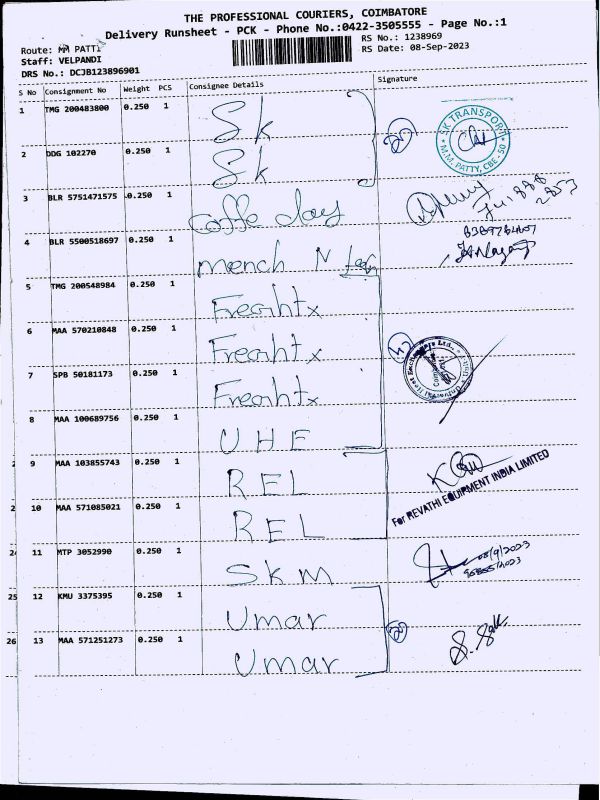 THE PROFESSIONAL COURIERS, COIMBATORE
Delivery Runsheet - PCK - Phone No.:0422-3505555 - Page No.:1
Route: MM PATTI
RS No.: 1238969
Staff: VELPANDI
RS Date: 08-Sep-2023
DRS No.: DCJB123896901
S No Consignment No Weight PCS Consignee Details Signature
1 TMG 200483800 0.250 1 Sk
SK TRANSPORT
M.M. PATTY, CBE - 50
2 DDG 102270 0.250 1 Sk
3 BLR 5751471575 0.250 1 coffe day
4 BLR 5500518697 0.250 1 mench N
5 TMG 200548984 0.250 1 Freaihtx
6 MAA 570210848 0.250 1 Freaihtx
7 SPB 50181173 0.250 1 Freaihtx
8 MAA 100689756 0.250 1 UHE
9 MAA 103855743 0.250 1 REL
For REVATHI EQUIPMENT INDIA LIMITED
10 MAA 571085021 0.250 1 REL
24 11 MTP 3052990 0.250 1 SKM
08/9/2023
25 12 KMU 3375395 0.250 1 Umar
26 13 MAA 571251273 0.250 1 Umar